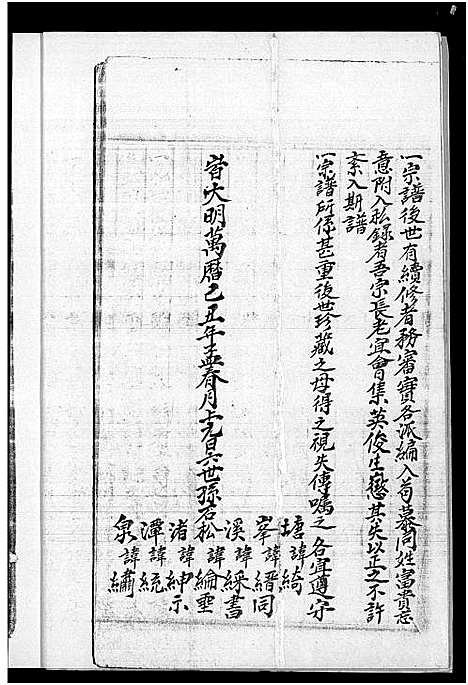 一宗譜後世有續修者務審實各派編入苟慕同姓富貴恣
意附入私錄者吾宗長老宜會集英俊生懲其失以正之不許
紊入斯譜
一宗譜所係甚重後世珍藏之毋得之視失傳囑之各宜遵守
皆大明萬曆己丑年孟春月 六世孫石松
塘諱綺
峯諱縉同
溪諱綵書
諱綸垂
渚諱紳示
潭諱統
泉諱繡